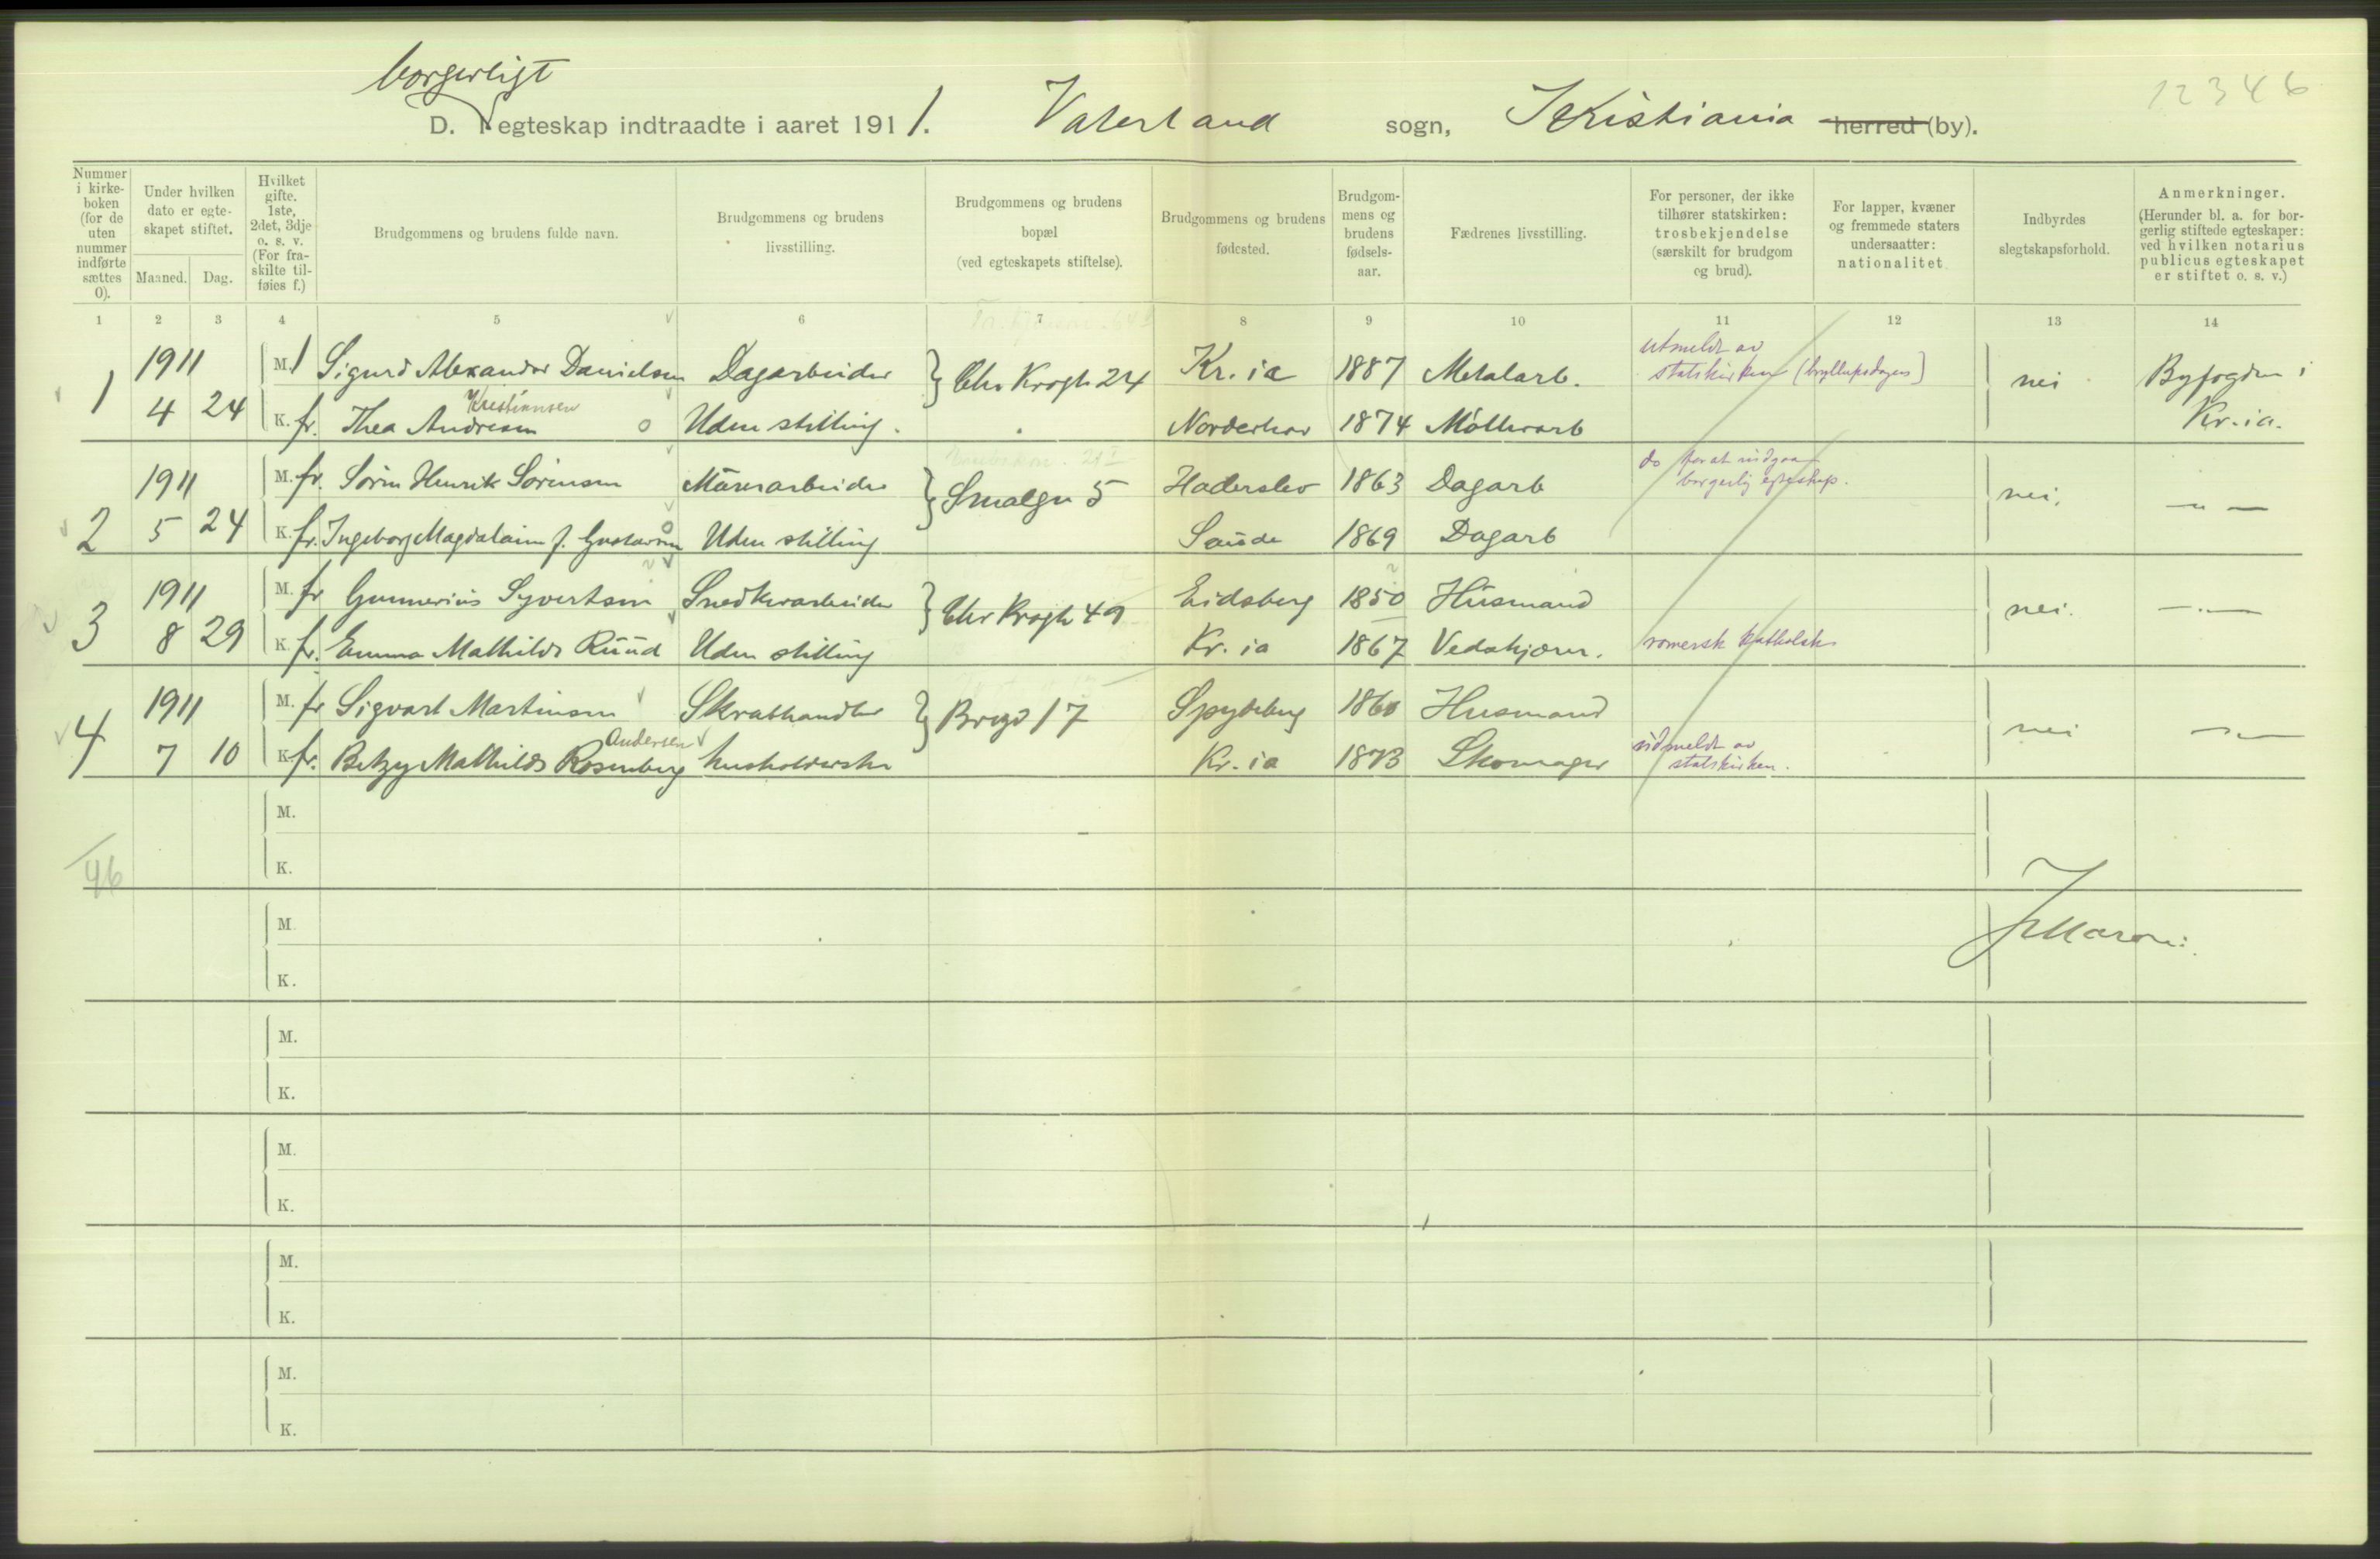 borgerligt
12346
D. I egteskap indtraadte i aaret 1911. Vaterland sogn, Kristiania herred (by).
Nummer i kirke-boken (for de uten nummer indførte sættes 0).
Under hvilken dato er egte-skapet stiftet.
Maaned. Dag.
Hvilket gifte. 1ste, 2det, 3dje o. s. v. (For fra-skilte til-føies f.)
Brudgommens og brudens fulde navn.
Brudgommens og brudens livsstilling.
Brudgommens og brudens bopæl (ved egteskapets stiftelse).
Brudgommens og brudens fødested.
Brudgom-mens og brudens fødsels-aar.
Fædrenes livsstilling.
For personer, der ikke tilhører statskirken: trosbekjendelse (særskilt for brudgom og brud).
For lapper, kvæner og fremmede staters undersaatter: nationalitet
Indbyrdes slegtskapsforhold.
Anmerkninger. (Herunder bl. a. for bor-gerlig stiftede egteskaper: ved hvilken notarius publicus egteskapet er stiftet o. s. v.)
1 2 3 4 5 6 7 8 9 10 11 12 13 14
1 1911 M. 1 Sigurd Alexander Danielsen Dagarbeider } Chr Krogh 24 Kr.ia 1887 Metalarb. utmeldt av statskirken (bryllupsdagen) nei Byfogden i
4 24 K. fr. Thea Andresen Kristiansen Uden stilling. Norderhov 1874 Møllerarb Kr.ia.
2 1911 M. fr. Sörin Henrik Sörensen Mürerarbeider } Smalgn 5 Haderslev 1863 Dagarb do for at indgaa borgerlig egteskap. nei. — " —
5 24 K. fr. Ingeborg Magdalaine f. Gustavsen Uden stilling Saude 1869 Dagarb
3 1911 M. fr Gunnerius Syvertsen Snedkerarbeider } Chr Krogh 49 Eidsberg 1850 Husmand nei. — " —
8 29 K. fr. Emma Mathilde Ruud Uden stilling Kr.ia 1867 Vedskjærer. romersk katholsk
4 1911 M. fr Sigvart Martinsen Skraphandler } Brogd 17 Spydeberg 1860 Husmand nei — " —
7 10 K. fr. Betzy Mathilde Rosenberg Andersen husholderske Kr.ia 1873 Skomager udmeldt av statskirken.
M.
K.
46
M.
K.
M.
K.
M.
K.
M.
K.
M.
K.